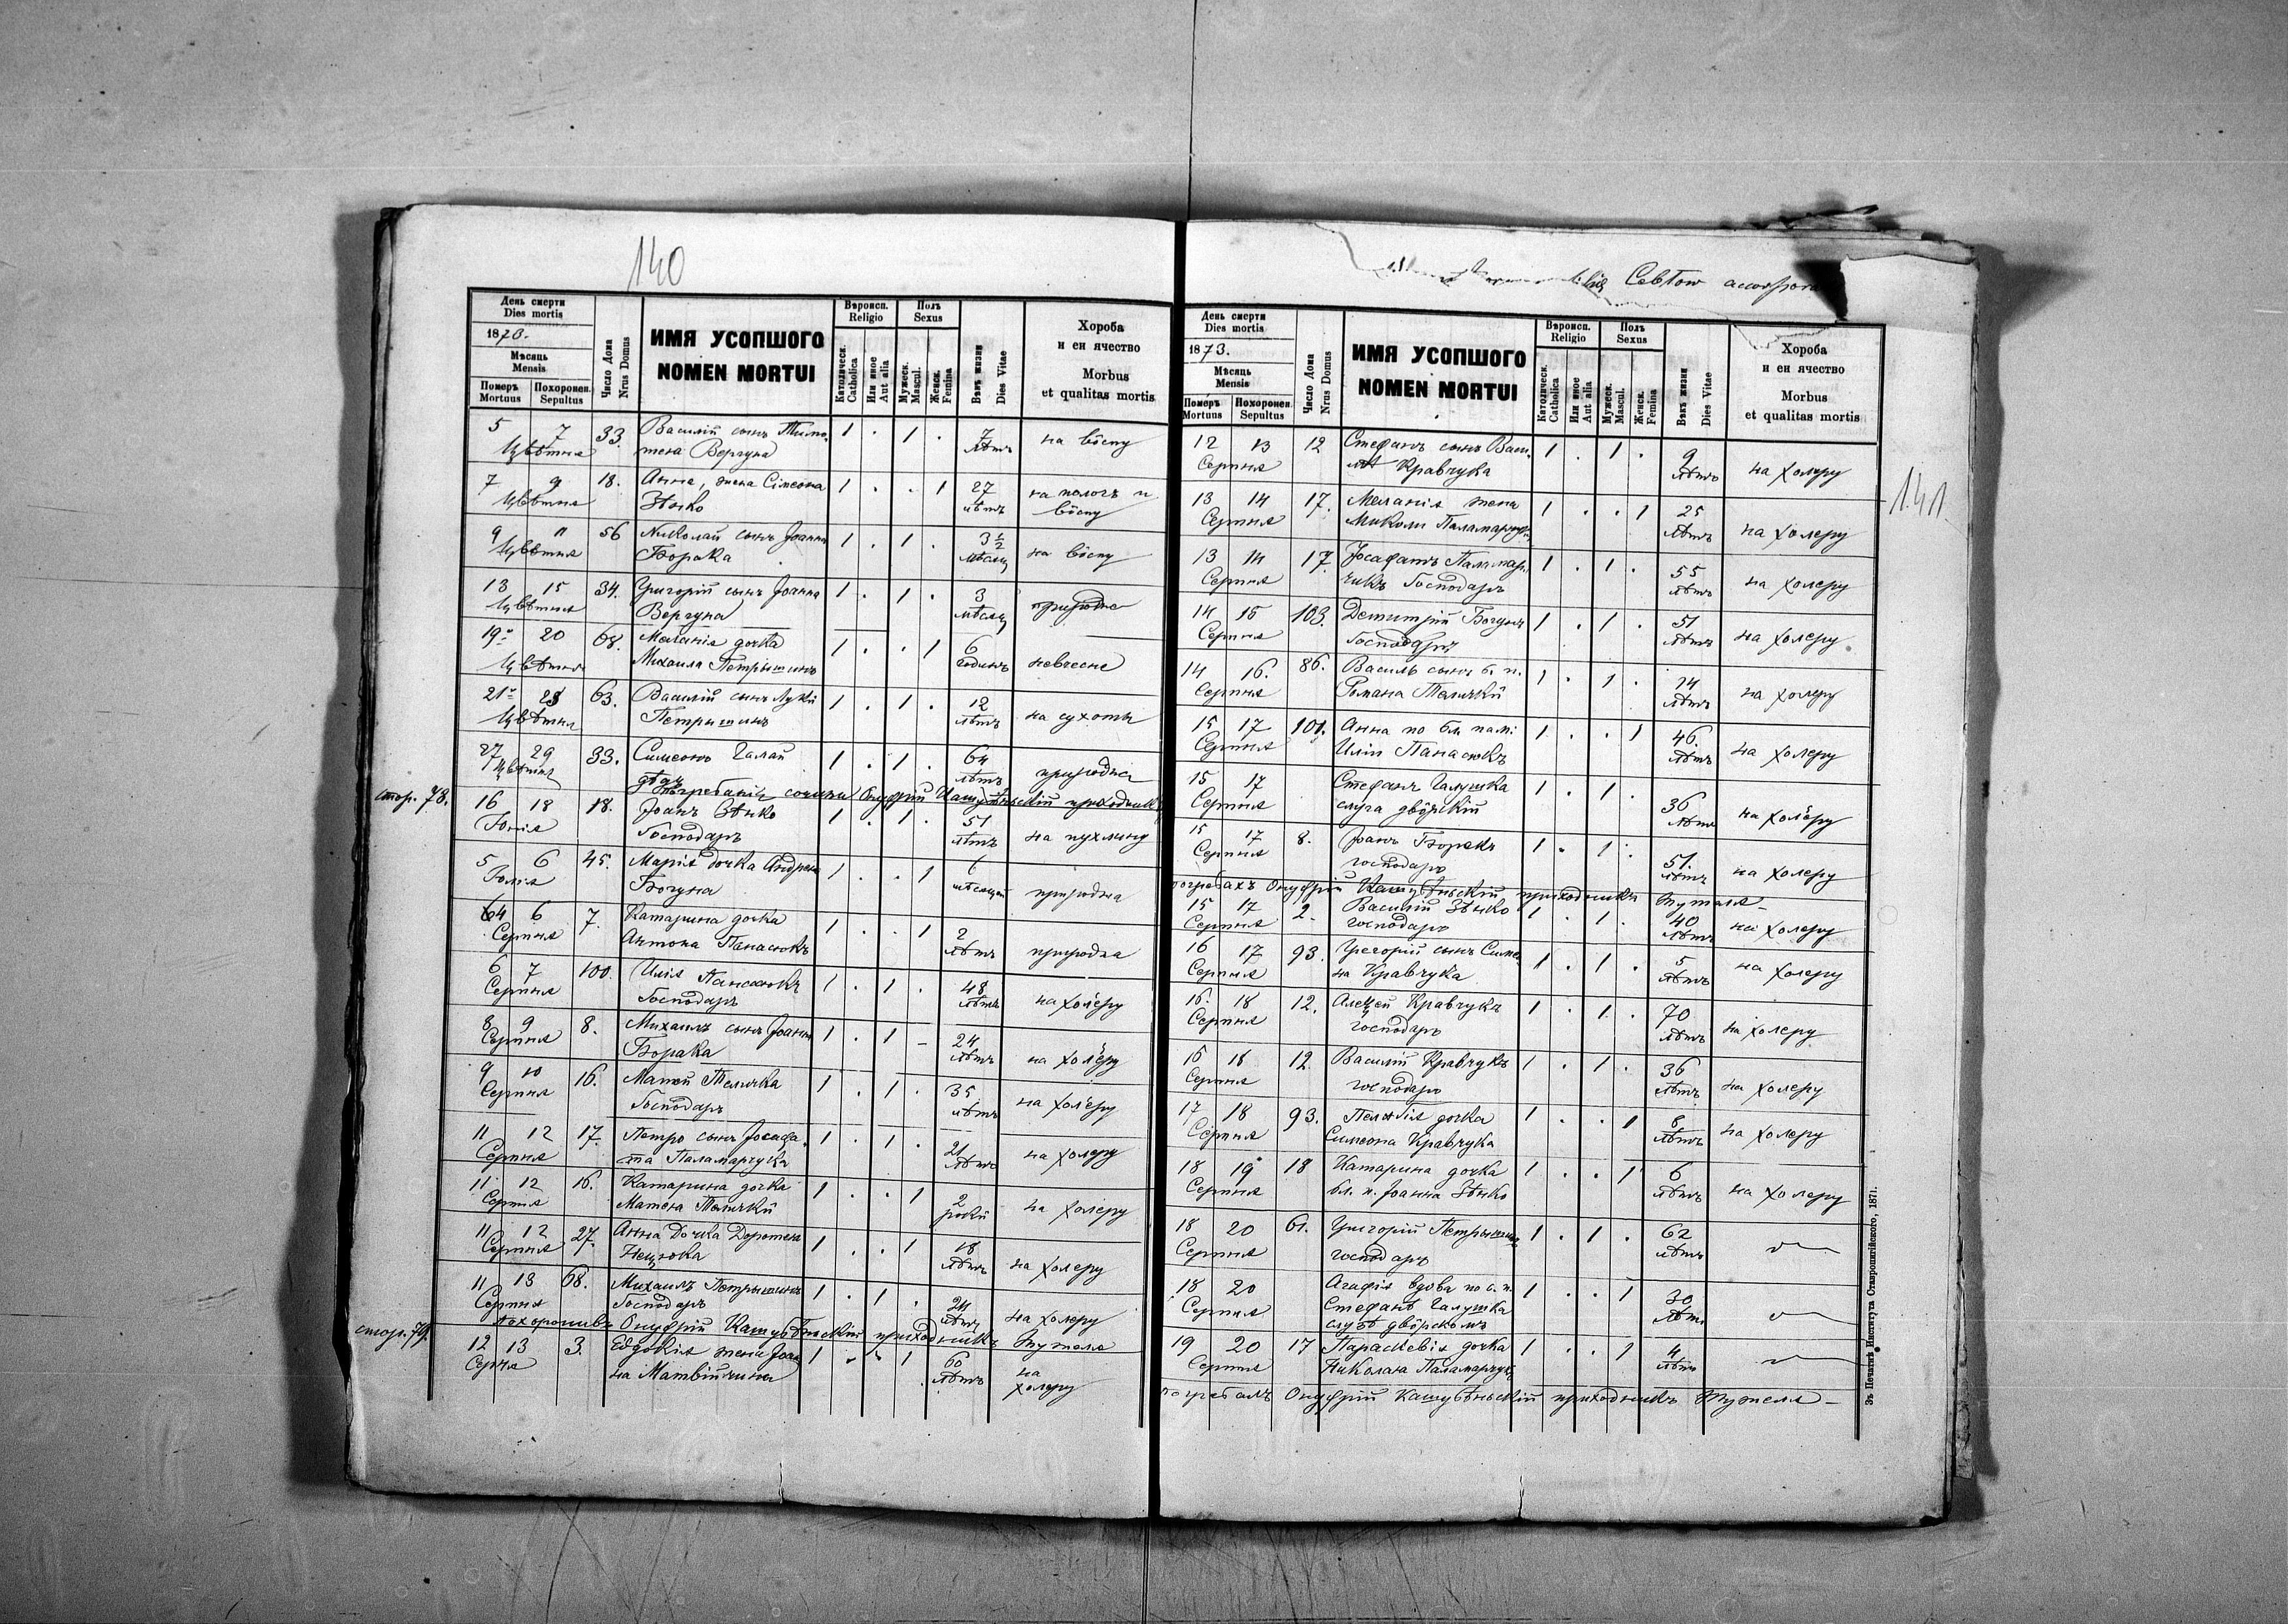 140
День смерти
Dies mortis
1873.
Мѣсяць
Mensis
Померъ Похоронен.
Mortuus Sepultus
Число Дома
Nrus Domus
ИМЯ УСОПШОГО
NOMEN MORTUI
Вѣроисп.
Religio
Католическ.
Catholica
Или иное
Aut alia
Полъ
Sexus
Мужеск.
Mascul.
Женск.
Femina
Вѣкъ жизни
Dies Vitae
Хороба
и еи ячество
Morbus
et qualitas mortis
5 7 33. Василій сынъ Тимо- 1 . 1 . 7 на вôспу
Цвѣтня тея Вергуна лѣтъ
7 9 18. Анна, жена Сімеона 1 . . 1 27 на пологъ и
Цвѣтня Зѣнко лѣтъ вôспу
9 11 56 Николай сынъ Іоанна 1 . 1 . 3 1/2 на вôспу
Цвѣтня Борака мѣсяц
13 15 34. Григорій сынъ Іоанна 1 . 1 . 3 природна
Цвѣтня Вергуна мѣсяц
19 20 68. Меланія дочка 1 . . 1 6
Цвѣтня Михаила Петришинъ годинъ невчесне
21 23 63. Василій сынъ Луки 1 . 1 . 12 на сухоти
Цвѣтня Петришинъ лѣтъ
27 29 33. Симеонъ Галай 1 . 1 . 64 природна
Цвѣтня дѣдъ лѣтъ
стор. 78.
Онуфрій
16 18 18. Іоанъ Зѣнко 1 . 1 . 51 на пухлину
Юнія Господаръ лѣтъ
5 6 45. Марія дочка Андрея 1 . . 1 6 природна
Юлія Богуна мѣсяцей
4 6 7. Катарина дочка 1 . . 1 2 природна
Серпня Антона Панасюкъ лѣтъ
6 7 100. Илія Панасюкъ 1 . 1 . 48 на холеру
Серпня Господаръ лѣтъ
8 9 8. Михаилъ сынъ Іоанна 1 . 1 - 24 на холеру
Серпня Борака лѣтъ
9 10 16. Матей Теличка 1 . 1 . 35 на холеру
Серпня Господаръ лѣтъ
11 12 17. Петро сынъ Йосафа- 1 . 1 . 21 на холеру
Серпня та Паламарчука лѣтъ
11 12 16. Катарина дочка 1 . . 1 2 на холеру
Серпня Матея Телички роки
11 12 27. Анна Дочка Доротея 1 . . 1 18 на холеру
Серпня лѣтъ
11 13 68. Михаилъ Петришинъ 1 . 1 . 24 на холеру
Серпня Господаръ лѣтъ
похоронивъ Онуфрій приходникъ Тужеля
стор. 79.
12 13 3. Евдокія жена Іоан 1 1 60 на
на Матвійчина лѣтъ холеру
141
День смерти
Dies mortis
1873.
Мѣсяць
Mensis
Померъ Похоронен.
Mortuus Sepultus
Число Дома
Nrus Domus
ИМЯ УСОПШОГО
NOMEN MORTUI
Вѣроисп.
Religio
Католическ.
Catholica
Или иное
Aut alia
Полъ
Sexus
Мужеск.
Mascul.
Женск.
Femina
Вѣкъ жизни
Dies Vitae
Хороба
и еи ячество
Morbus
et qualitas mortis
12 13 12 Стефанъ сынъ Васи- 1 . 1 . 9 на холеру
Серпня ля Кравчука лѣтъ
13 14 17. Меланія жена 1 . . 1 25 на холеру
Серпня Миколи Паламарчука лѣтъ
13 14 17. Йосафатъ Паламар- 1 . 1 . 55 на холеру
Серпня чикъ Господаръ лѣтъ
14 15 103. Демитрій Богунъ 1 . 1 . 51 на холеру
Серпня Господарь лѣтъ
14 16. 86. Василь сынъ б. п. 1 . 1 . 14 на холеру
Серпня Романа Телички лѣтъ
15 17 101. Анна по бл. пам. 1 . . 1 46. на холеру
Серпня Иліи Панасюкъ лѣтъ
15 17 Стефанъ Галушка 1 . 1 . 36 на холеру
Серпня слуга двôрскій лѣтъ
15 17 8. Іоанъ Боракъ 1 . 1 . 51. на холеру
Серпня господаръ лѣтъ
Онуфрій приходникъ Тужеля –
15 17 2. Василій Зѣнко 1 . 1 . 40 на холеру
Серпня господаръ лѣтъ
16 17 93. Григорій сынъ Симео- 1 . 1 . 5 на холеру
Серпня на Кравчука лѣтъ
16. 18 12. Алексей Кравчукъ 1 . 1 . 70 на холеру
Серпня господаръ лѣтъ
16 18 12. Василій Кравчукъ 1 . 1 . 36 на холеру
Серпня господаръ лѣтъ
17 18 93. Пелагія дочка 1 . . 1 8 на холеру
Серпня Симеона Кравчука лѣтъ
18 19 18 Катарина дочка 1 . . 1 6 на холеру
Серпня бл. п. Іоанна Зѣнко лѣтъ
18 20 61. Григорій Петришинъ 1 . 1 . 62
Серпня господаръ лѣтъ
18 20 Агафія вдова по б. п. 1 . . 1 30
Серпня Стефанѣ Галушка лѣтъ
слузѣ двôрскомъ
19 20 17 Параскевія дочка 1 . . 1 4
Серпня Николая Паламарчука лѣтъ
Онуфрій приходникъ Тужеля –
Зъ Печатнѣ Института Ставропигійского, 1871.